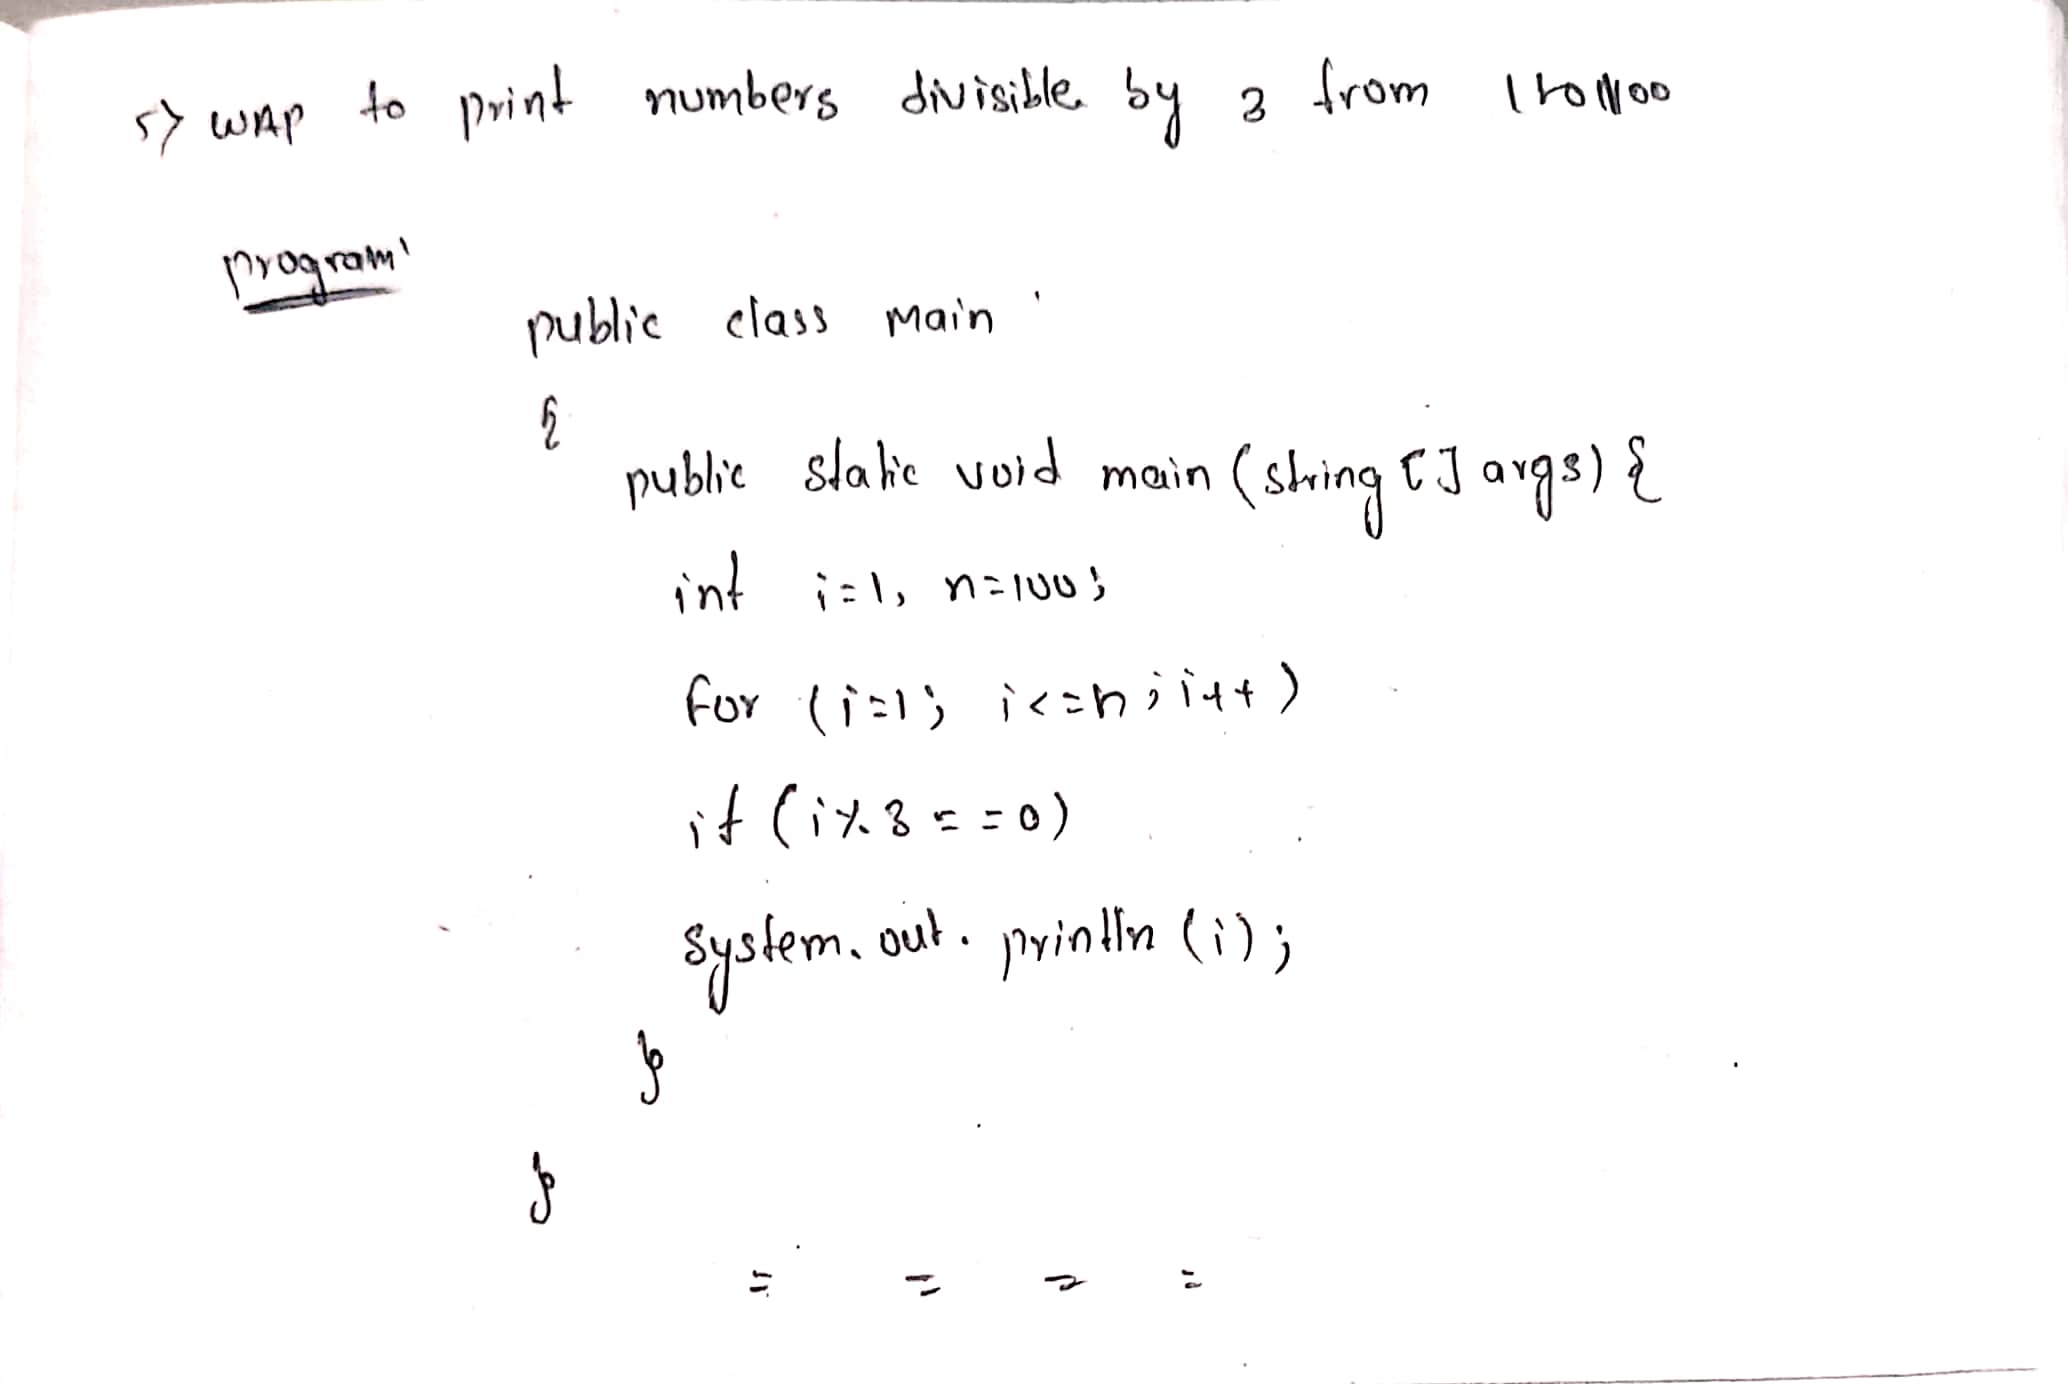 5> WAP to print numbers divisible by 3 from 1 to 100
program'
public class main
{
public static void main (string [] args) {
int i=1, n=100;
for (i=1; i<=n; i++)
if (i%3==0)
system.out.println (i);
}
}
= = = =